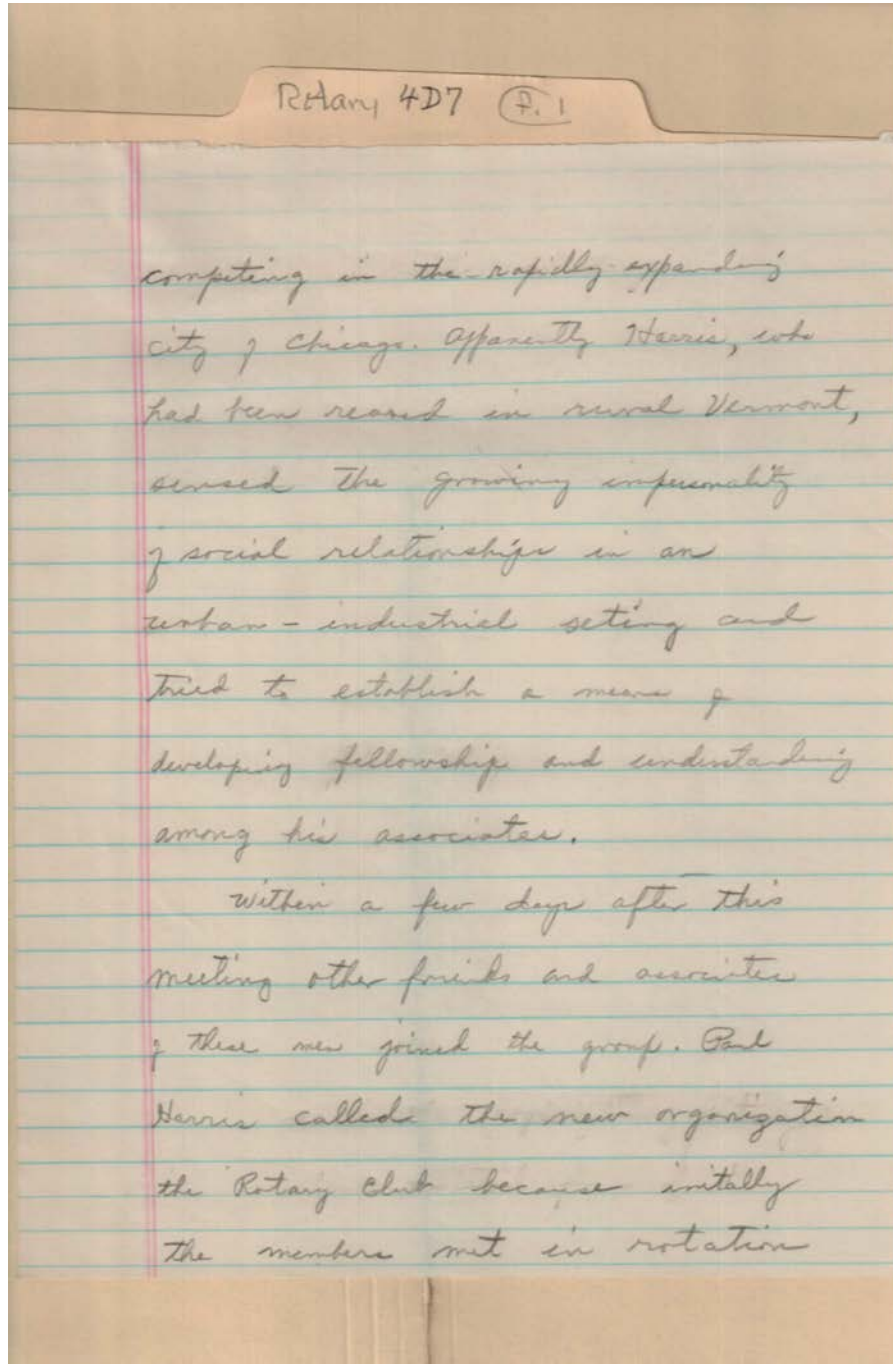 Rotary 4D7 P. 1
competing in the rapidly expanding
city of Chicago. Apparently Harris, who
had been reared in rural Vermont,
sensed the growing impersonality
of social relationships in an
urban - industrial seting and
tried to establish a means of
developing fellowship and understanding
among his associates.
Within a few days after this
meeting other friends and associates
of these men joined the group. Paul
Harris called the new organization
the Rotary Club because initally
the members met in rotation